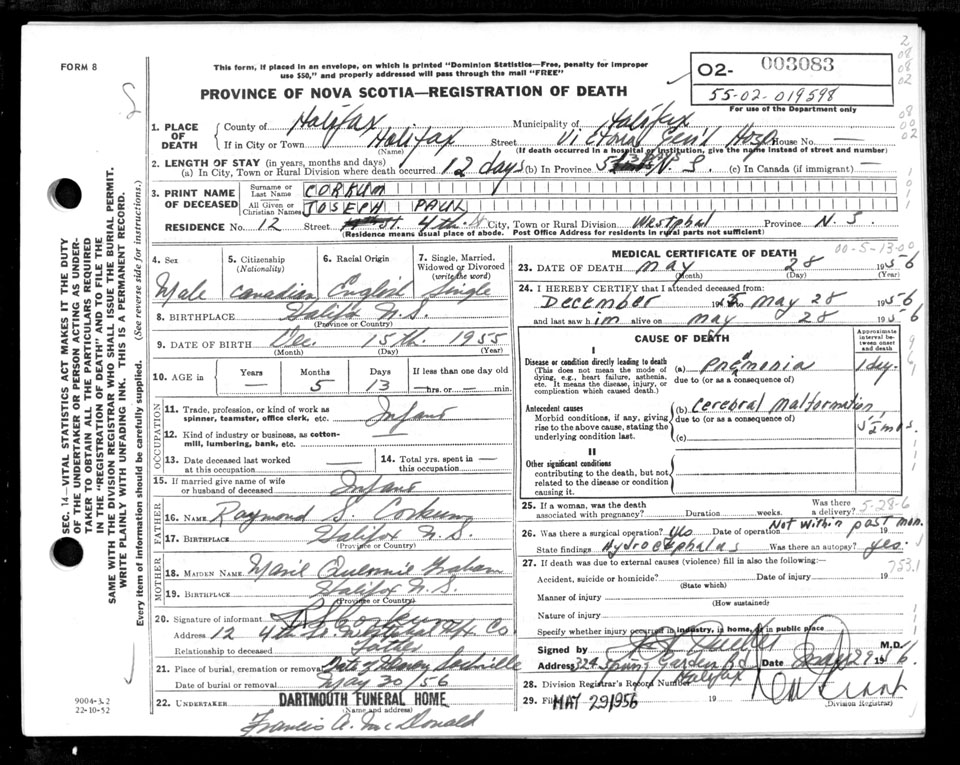 FORM 8
This form, if placed in an envelope, on which is printed "Dominion Statistics—Free, penalty for improper
use $50," and properly addressed will pass through the mail "FREE"
PROVINCE OF NOVA SCOTIA—REGISTRATION OF DEATH
02- 003083
55-02-019598
For use of the Department only
1. PLACE OF DEATH
County of Halifax Municipality of Halifax
If in City or Town Halifax Street Victoria Gen'l Hosp House No. —
(Name) (If death occurred in a hospital or institution, give the name instead of street and number)
2. LENGTH OF STAY (in years, months and days)
(a) In City, Town or Rural Division where death occurred 12 days (b) In Province (c) In Canada (if immigrant) —
3. PRINT NAME OF DECEASED
Surname or Last Name CORKUM
All Given or Christian Names JOSEPH PAUL
RESIDENCE No. 12 Street 4th St City, Town or Rural Division Westphal Province N.S.
(Residence means usual place of abode. Post Office Address for residents in rural parts not sufficient)
4. Sex Male
5. Citizenship (Nationality) Canadian
6. Racial Origin English
7. Single, Married, Widowed or Divorced (write the word) Single
8. BIRTHPLACE Halifax N.S.
(Province or Country)
9. DATE OF BIRTH Dec. 15th. 1955
(Month) (Day) (Year)
10. AGE in Years — Months 5 Days 13 If less than one day old —hrs. or — min.
OCCUPATION
11. Trade, profession, or kind of work as spinner, teamster, office clerk, etc. Infant
12. Kind of industry or business, as cotton-mill, lumbering, bank, etc. —
13. Date deceased last worked at this occupation —
14. Total yrs. spent in this occupation —
15. If married give name of wife or husband of deceased Infant
FATHER
16. NAME Raymond S. Corkum
17. BIRTHPLACE Halifax N.S.
(Province or Country)
MOTHER
18. MAIDEN NAME Marie Graham
19. BIRTHPLACE Halifax N.S.
(Province or Country)
20. Signature of informant R S Corkum
Address 12 4th St. Westphal Hfx Co.
Relationship to deceased Father
21. Place of burial, cremation or removal Sackville
Date of burial or removal May 30/56
22. UNDERTAKER DARTMOUTH FUNERAL HOME
(Name and address)
Francis A. McDonald
MEDICAL CERTIFICATE OF DEATH
00-5-13-00
23. DATE OF DEATH May 28 1956
(Month) (Day) (Year)
24. I HEREBY CERTIFY that I attended deceased from:
December 1955 to May 28 1956
and last saw him alive on May 28 1956
CAUSE OF DEATH
Approximate interval between onset and death
I
Disease or condition directly leading to death
(This does not mean the mode of dying, e.g., heart failure, asthenia, etc. It means the disease, injury, or complication which caused death.)
(a) Pneumonia 1 day.
due to (or as a consequence of)
Antecedent causes
Morbid conditions, if any, giving rise to the above cause, stating the underlying condition last.
(b) Cerebral malformation, 5½ mos.
due to (or as a consequence of)
(c)
II
Other significant conditions
contributing to the death, but not related to the disease or condition causing it.
25. If a woman, was the death associated with pregnancy? Duration weeks. Was there a delivery?
5-28-6
26. Was there a surgical operation? Yes Date of operation Not within past mon. 19
State findings Hydrocephalus Was there an autopsy? Yes.
27. If death was due to external causes (violence) fill in also the following:—
753.1
Accident, suicide or homicide? Date of injury 19
(State which)
Manner of injury
(How sustained)
Nature of injury
Specify whether injury occurred in industry, in home, or in public place
Signed by M.D.
Address 324 Spring Garden Rd Date May 29 1956
Halifax
28. Division Registrar's Record Number
29. Filed MAY 29 1956 19
(Division Registrar)
9004-3.2
22-10-52
SEC. 14—VITAL STATISTICS ACT MAKES IT THE DUTY
OF THE UNDERTAKER OR PERSON ACTING AS UNDER-
TAKER TO OBTAIN ALL THE PARTICULARS REQUIRED
IN THE "REGISTRATION OF DEATH" AND TO FILE THE
SAME WITH THE DIVISION REGISTRAR WHO SHALL ISSUE THE BURIAL PERMIT.
WRITE PLAINLY WITH UNFADING INK. THIS IS A PERMANENT RECORD.
Every item of information should be carefully supplied. (See reverse side for instructions.)